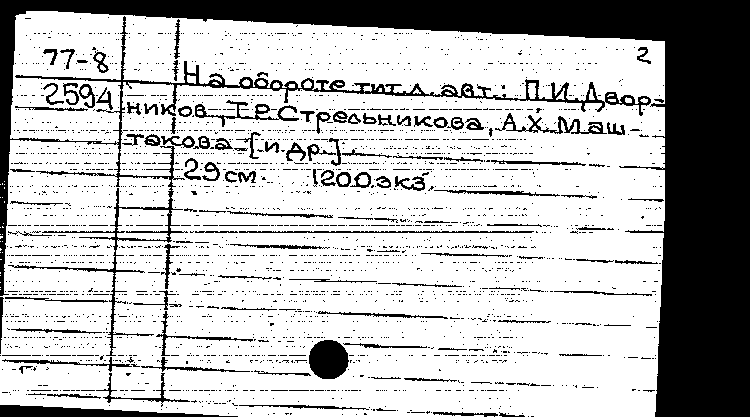 2
77-8
На обороте тит. л. авт.: П.И.Двор-
2594
ников, Т.Р.Стрельникова, А.Х.Маш-
такова [и др.].
29 см. 1200 экз.